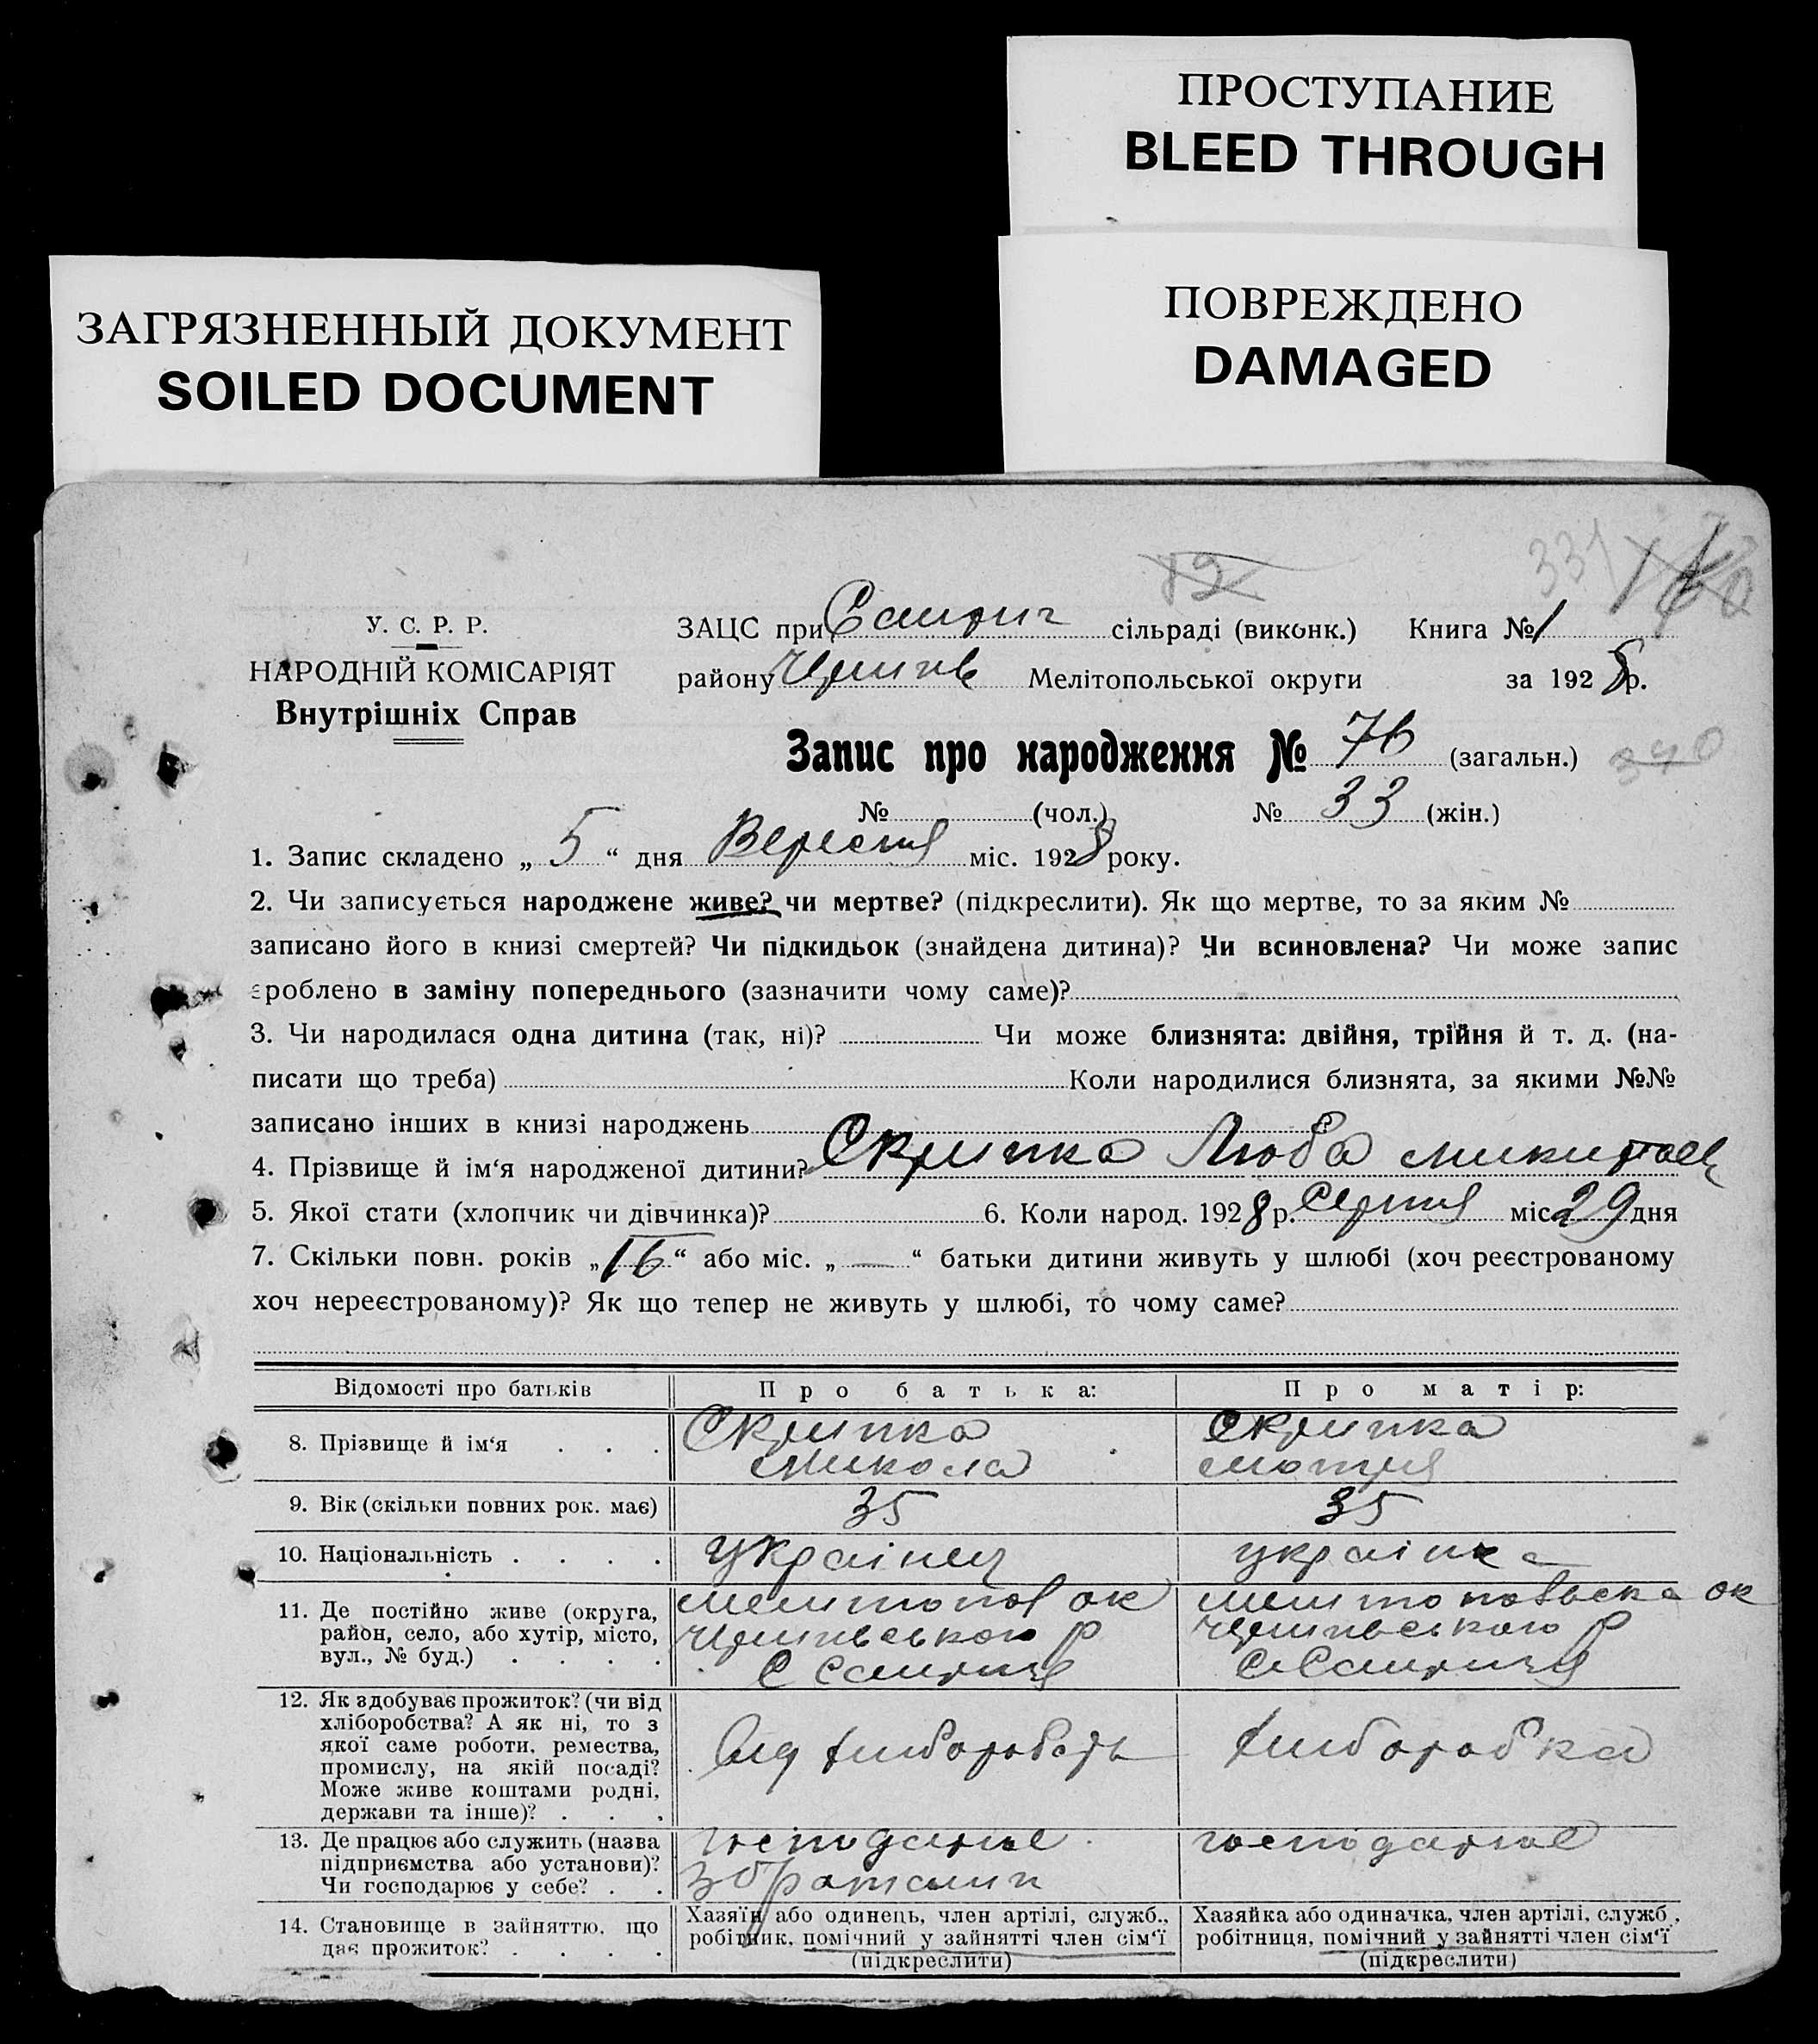 ПРОСТУПАНИЕ
BLEED THROUGH
ПОВРЕЖДЕНО
DAMAGED
ЗАГРЯЗНЕННЫЙ ДОКУМЕНТ
SOILED DOCUMENT
331
12
У. С. Р. Р.
НАРОДНІЙ КОМІСАРІЯТ
Внутрішніх Справ
ЗАЦС при сільраді (виконк.) Книга № 1
району Мелітопольської округи за 1928 р.
Запис про народження № 76 (загальн.)
340
№ (чол.) № 33 (жін.)
1. Запис складено „ 5 “ дня Вересня міс. 1928 року.
2. Чи записується народжене живе? чи мертве? (підкреслити). Як що мертве, то за яким №
записано його в книзі смертей? Чи підкидьок (знайдена дитина)? Чи всиновлена? Чи може запис
зроблено в заміну попереднього (зазначити чому саме)?
3. Чи народилася одна дитина (так, ні)? Чи може близнята: двійня, трійня й т. д. (на-
писати що треба) Коли народилися близнята, за якими №№
записано інших в книзі народжень
4. Прізвище й ім‘я народженої дитини? Скрипка Люба
5. Якої стати (хлопчик чи дівчинка)? 6. Коли народ. 1928 р. Серпня міс 29 дня
7. Скільки повн. років „ 16 “ або міс. „ — “ батьки дитини живуть у шлюбі (хоч реєстрованому
хоч нереєстрованому)? Як що тепер не живуть у шлюбі, то чому саме?
Відомості про батьків Про батька: Про матір:
8. Прізвище й ім‘я Скрипка Микола Скрипка Мотря
9. Вік (скільки повних рок. має) 35 35
10. Національність українец українка
11. Де постійно живе (округа,
район, село, або хутір, місто,
вул., № буд.)
12. Як здобуває прожиток? (чи від
хліборобства? А як ні, то з
якої саме роботи, ремества,
промислу, на якій посаді?
Може живе коштами родні,
держави та інше)?
хліборобка
13. Де працює або служить (назва
підприємства або установи)?
Чи господарює у себе?
господарює
з братами
господарює
14. Становище в зайняттю, що
дає прожиток?
Хазяїн або одинець, член артілі, служб.,
робітник, помічний у зайнятті член сім‘ї
(підкреслити)
Хазяйка або одиначка, член артілі, служб.,
робітниця, помічний у зайнятті член сім‘ї
(підкреслити)